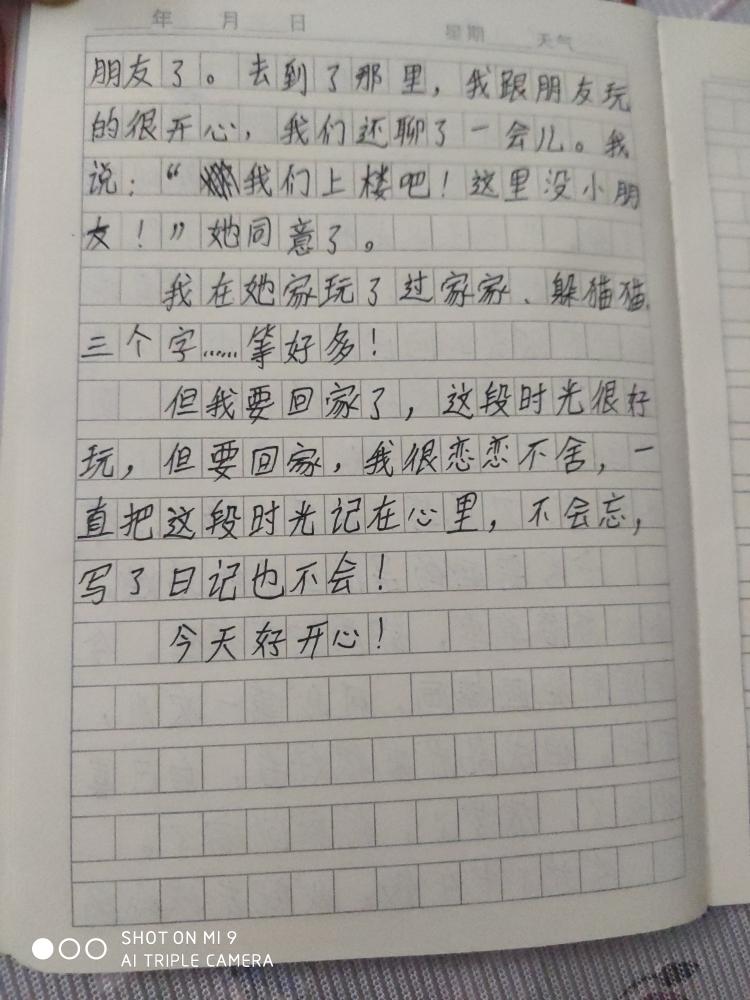 年 月 日 星期 天气
朋友了。去到了那里，我跟朋友玩
的很开心，我们还聊了一会儿。我
说：“我们上楼吧！这里没小朋
友！”她同意了。
我在她家玩了过家家、躲猫猫、
三个字……等好多！
但我要回家了，这段时光很好
玩，但要回家，我很恋恋不舍，一
直把这段时光记在心里，不会忘，
写了日记也不会！
今天好开心！
SHOT ON MI 9
AI TRIPLE CAMERA